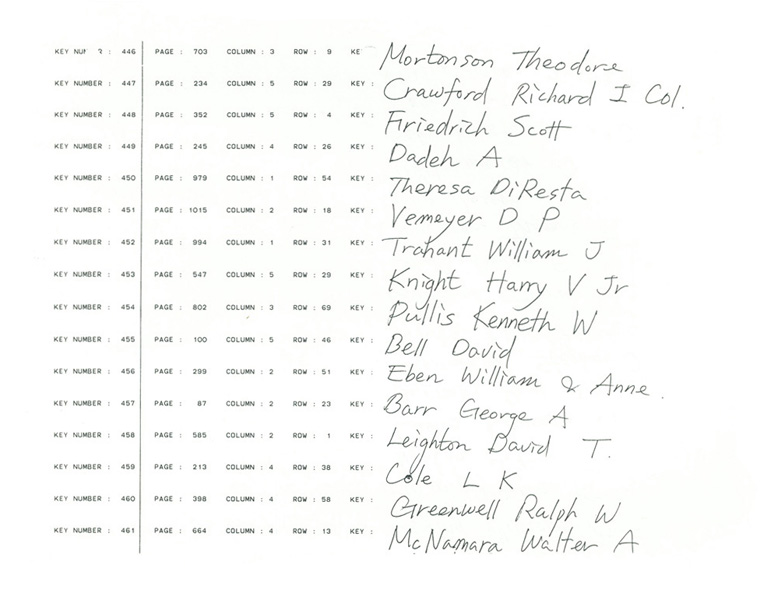 KEY NUM : 446 PAGE : 703 COLUMN : 3 ROW : 9 KE Mortonson Theodore
KEY NUMBER : 447 PAGE : 234 COLUMN : 5 ROW : 29 KEY : Crawford Richard I Col.
KEY NUMBER : 448 PAGE : 352 COLUMN : 5 ROW : 4 KEY : Friedrich Scott
KEY NUMBER : 449 PAGE : 245 COLUMN : 4 ROW : 26 KEY : Dadeh A
KEY NUMBER : 450 PAGE : 979 COLUMN : 1 ROW : 54 KEY : Theresa DiResta
KEY NUMBER : 451 PAGE : 1015 COLUMN : 2 ROW : 18 KEY : Vemeyer D P
KEY NUMBER : 452 PAGE : 994 COLUMN : 1 ROW : 31 KEY : Trahant William J
KEY NUMBER : 453 PAGE : 547 COLUMN : 5 ROW : 29 KEY : Knight Harry V Jr
KEY NUMBER : 454 PAGE : 802 COLUMN : 3 ROW : 69 KEY : Pullis Kenneth W
KEY NUMBER : 455 PAGE : 100 COLUMN : 5 ROW : 46 KEY : Bell David
KEY NUMBER : 456 PAGE : 299 COLUMN : 2 ROW : 51 KEY : Eben William & Anne.
KEY NUMBER : 457 PAGE : 87 COLUMN : 2 ROW : 23 KEY : Barr George A
KEY NUMBER : 458 PAGE : 585 COLUMN : 2 ROW : 1 KEY : Leighton David T.
KEY NUMBER : 459 PAGE : 213 COLUMN : 4 ROW : 38 KEY : Cole L K
KEY NUMBER : 460 PAGE : 398 COLUMN : 4 ROW : 58 KEY : Greenwell Ralph W
KEY NUMBER : 461 PAGE : 664 COLUMN : 4 ROW : 13 KEY : McNamara Walter A